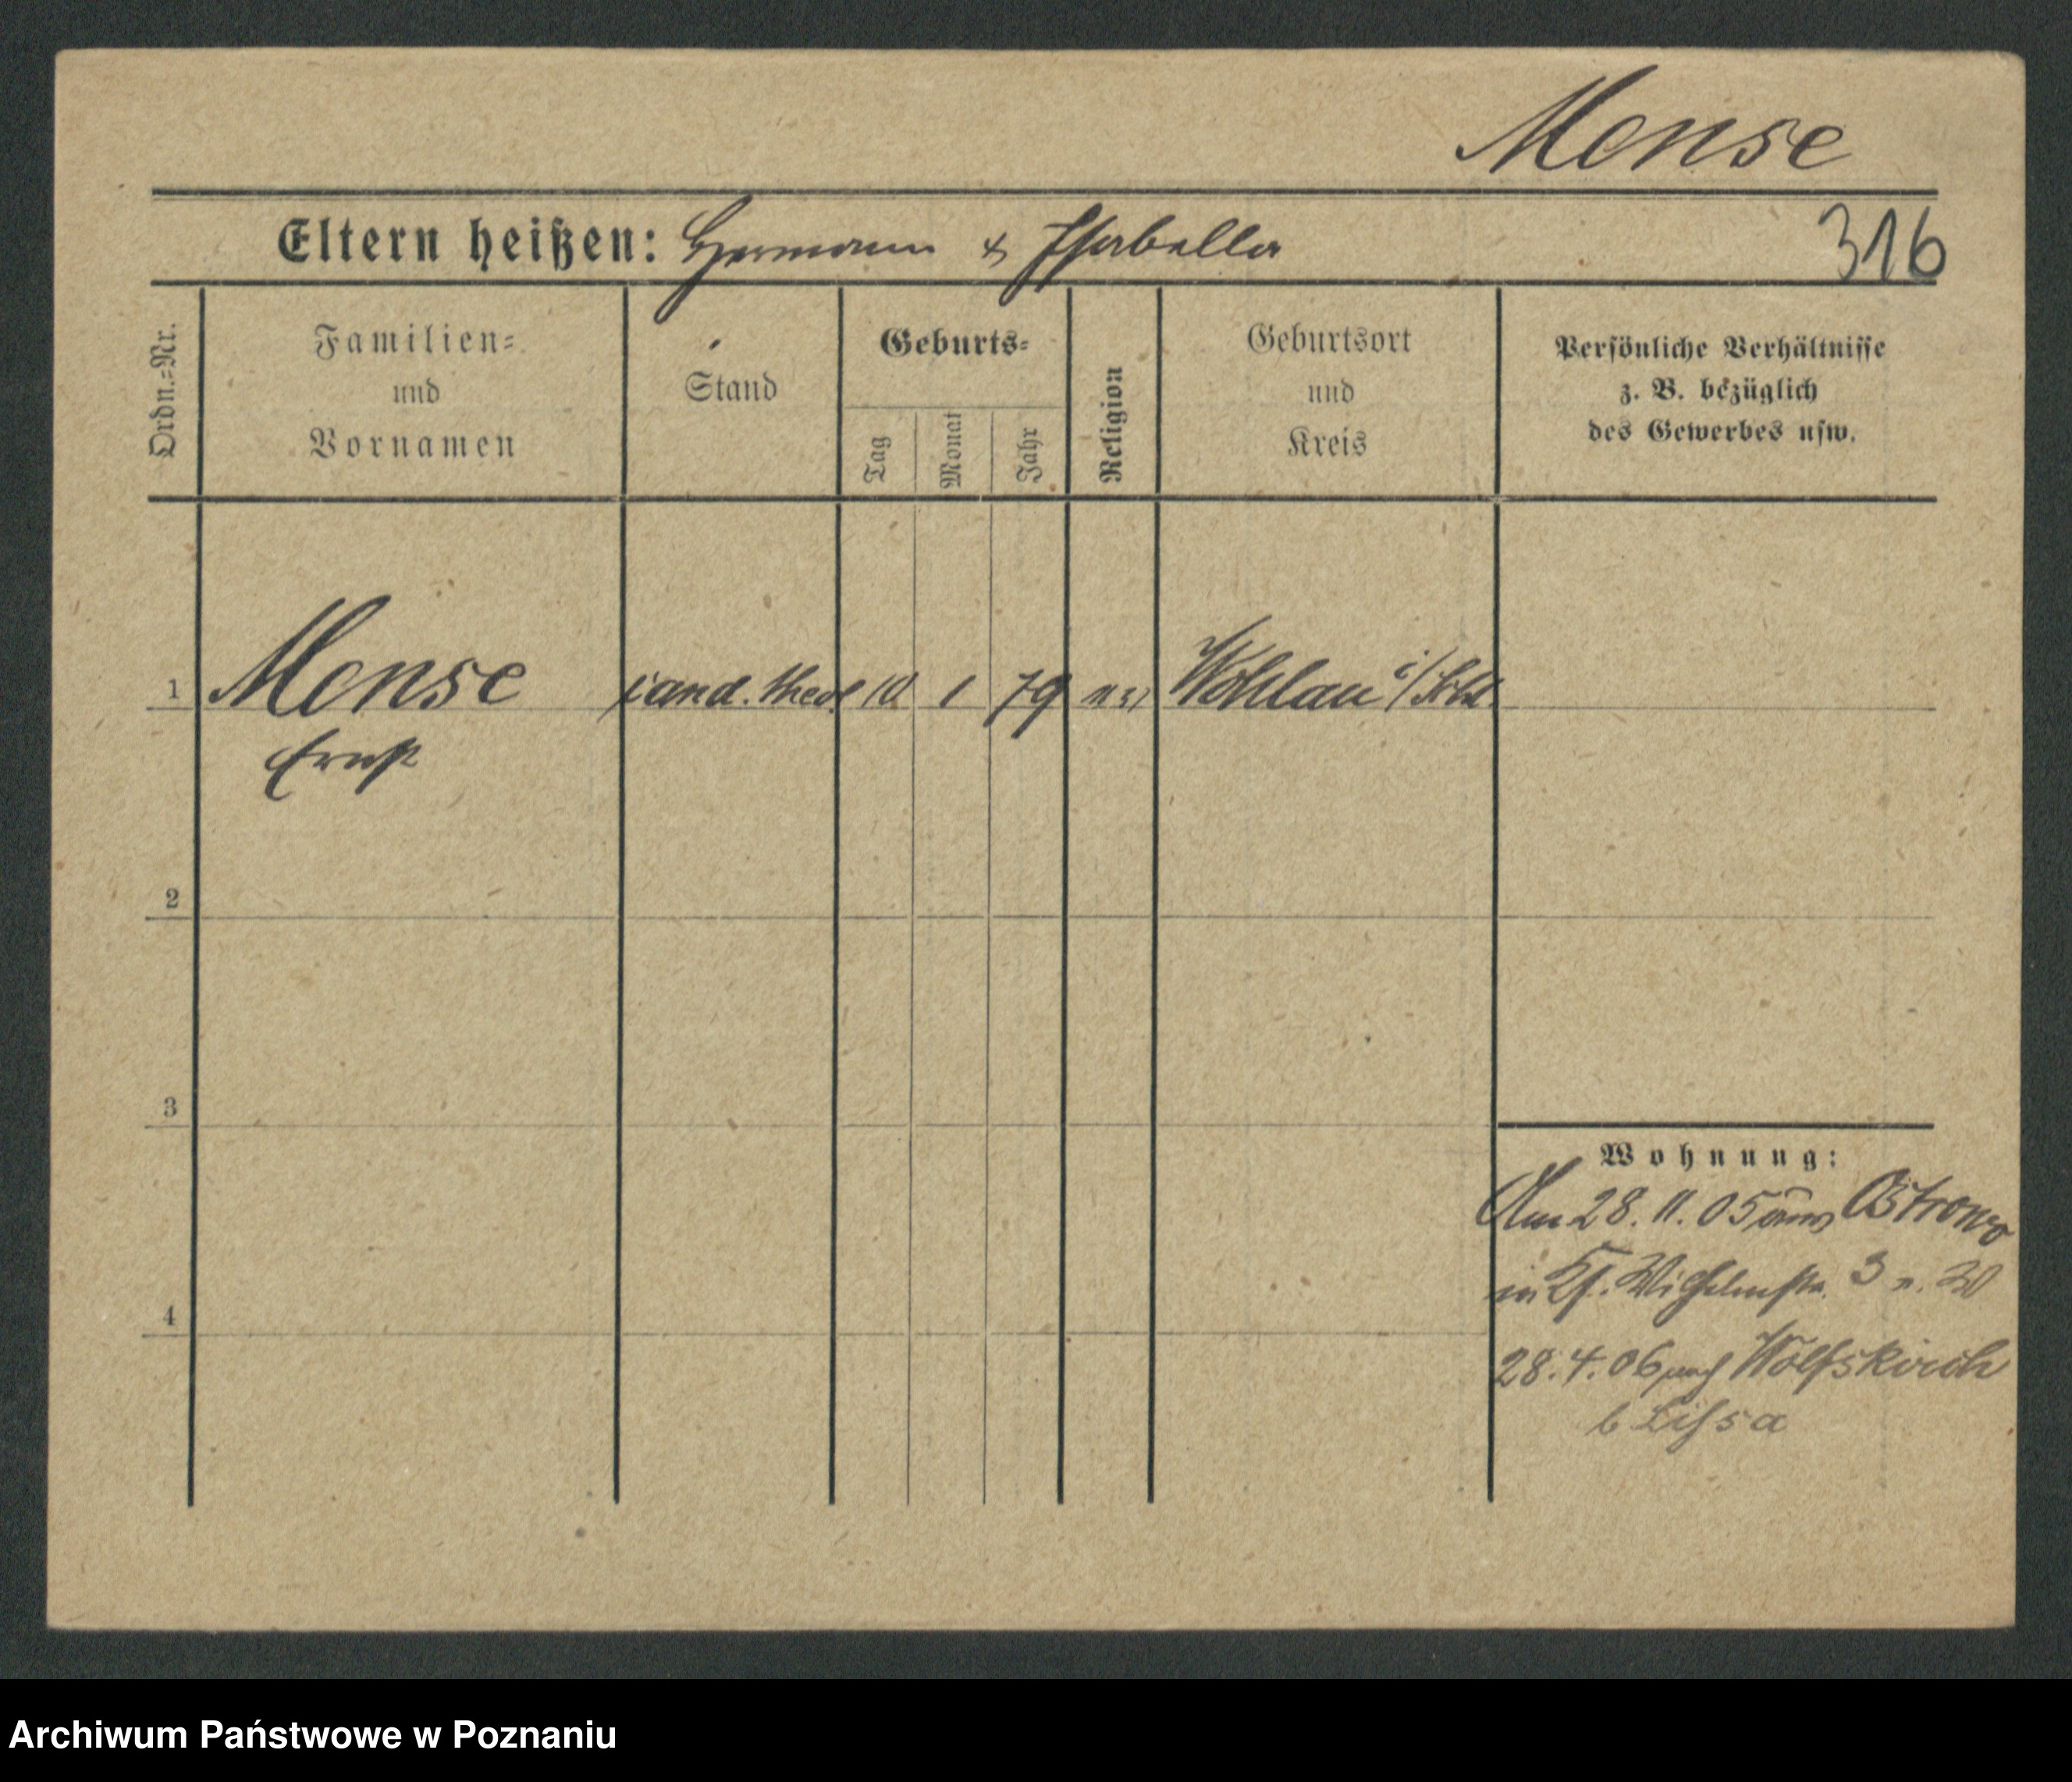 Mense
Eltern heißen: Hermann & Isabella
316
Ordn.=Nr.
Familien=
und
Vornamen
Stand
Geburts=
Tag
Monat
Jahr
Religion
Geburtsort
und
Kreis
Persönliche Verhältnisse
z. B. bezüglich
des Gewerbes usw.
1 Mense cand. theol 10 1 79 ev Wohlau i/Schl.
Ernst
2
3
4
Wohnung:
Am 28.11.05 aus Ostrowo
in Wilhelmstr. 3
28.4.06 nach Wolfskirch
b Lissa
Archiwum Państwowe w Poznaniu